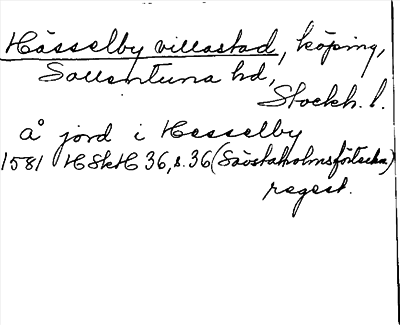 Hässelby villastad, köping,
Sollentuna hd,
Stockh. l.
å jord i Hesselby
1581 HSkH 36, s. 36 (Sävstaholmsförteckn)
regest.